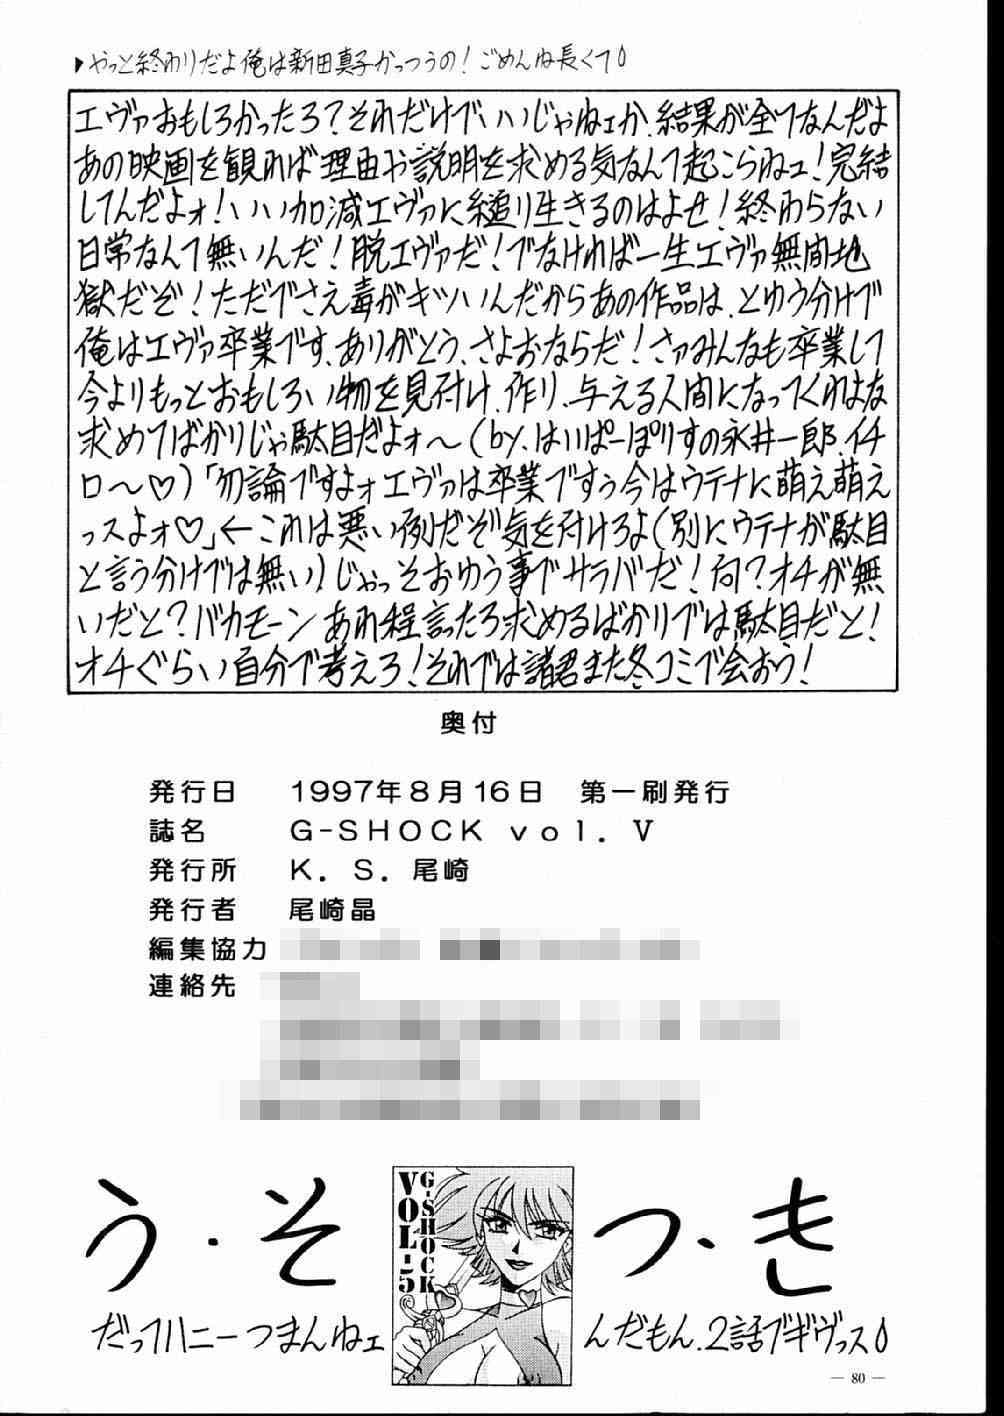 ▶やっと終わりだよ俺は新田真子かっつうの!ごめんね長くて
エヴァおもしろかったろ?それだけでいいじゃねェか、結果が全てなんだよ
あの映画を観れば理由や説明を求める気なんて起こらねェ!完結
してんだよォ!いいい加減エヴァに縋り生きるのはよせ!終わらない
日常なんて無いんだ!脱エヴァだ!でなければ一生エヴァ無間地
獄だぞ!ただでさえ毒がキツいんだからあの作品は、とゆう分けで
俺はエヴァ卒業です、ありがとう、さよおならだ!さァみんなも卒業して
今よりもっとおもしろい物を見付け、作り、与える人間になってくれはな
求めてばかりじゃ駄目だよォ〜(by、はいぱーぽりすの永井一郎、イチ
ロ〜♡)「勿論ですよォエヴァは卒業ですぅ今はウテナに萌え萌え
っスよォ♡」←これは悪い例だぞ気を付けろよ(別にウテナが駄目
と言う分けでは無い)じゃっそおゆう事でサラバだ!何?オチが無
いだと?バカモーンあれ程言ったろ求めるばかりでは駄目だと!
オチぐらい自分で考えろ!それでは諸君また冬コミで会おう!
奥付
発行日 1997年8月16日 第一刷発行
誌名 G-SHOCK vol. V
発行所 K. S. 尾崎
発行者 尾崎晶
編集協力
連絡先
う・そ つ、き
G-SHOCK
VOL-5
だってハニーつまんねェ んだもん、2話でギヴっス
— 80 —